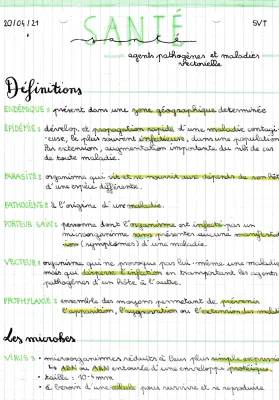 20/04/21
SANTÉ
SVT
santé
agents pathogènes et maladies
vectorielle
Définitions
ENDÉMIQUE : présent dans une zone géographique déterminée
ÉPIDÉMIE : dévelop. et propagation rapide d'une maladie contagi-
euse, le plus souvent infectieuse, dans une population.
Par extension, augmentation importante du nb de cas
de toute maladie.
PARASITE : organisme qui vit et se nourrit aux dépends de son hôte
d'une espèce différente.
PATHOGÈNE : à l'origine d'une maladie.
PORTEUR SAIN : personne dont l'organisme est infecté par un
microorganisme sans présenter aucune manifestat
ion (symptômes) d'une maladie.
VECTEUR : organisme qui ne provoque pas lui-même une maladie
mais qui disperse l'infection en transportant les agents
pathogènes d'un hôte à l'autre.
PROPHYLAXIE : ensemble des moyens permettant de prévenir
l'apparition, l'aggravation ou l'extension des maladies
Les microbes
VIRUS : • microorganismes réduits à leur plus simple expression
↳ ADN ou ARN entourée d'une enveloppe protéique
• taille :
• a besoin d'une cellule pour survivre et se reproduire